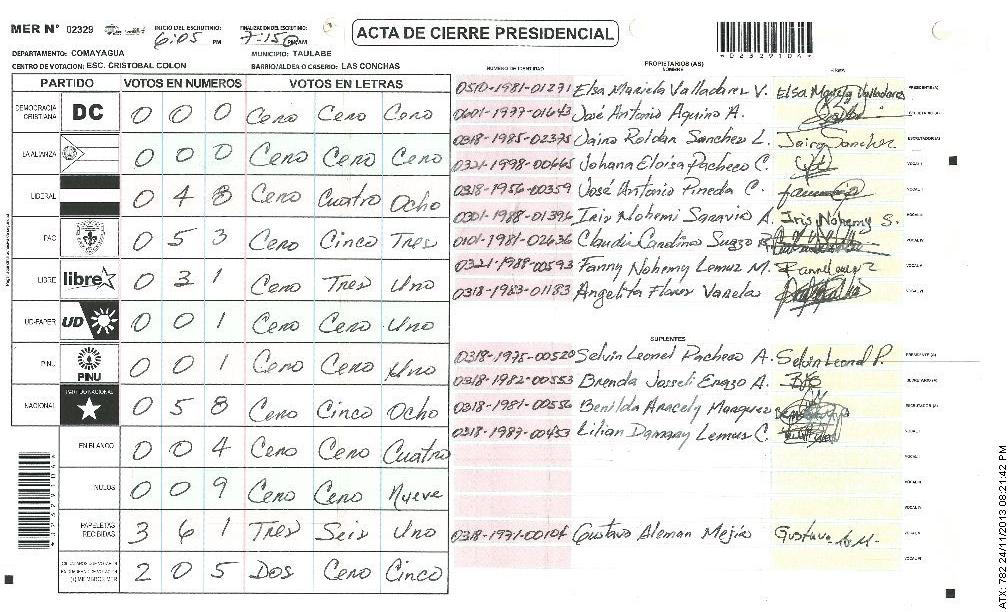 MER Nº 02329 INICIO DEL ESCRUTINIO: 6:05 PM FINALIZACIÓN DEL ESCRUTINIO: 7:15 PM/AM
ACTA DE CIERRE PRESIDENCIAL
DEPARTAMENTO: COMAYAGUA MUNICIPIO: TAULABE
CENTRO DE VOTACION: ESC. CRISTOBAL COLON BARRIO/ALDEA O CASERIO: LAS CONCHAS
PARTIDO VOTOS EN NUMEROS VOTOS EN LETRAS
DEMOCRACIA CRISTIANA DC 0 0 0 Cero Cero Cero
LA ALIANZA 0 0 0 Cero Cero Cero
LIBERAL 0 4 8 Cero Cuatro Ocho
PAC 0 5 3 Cero Cinco Tres
LIBRE libre 0 3 1 Cero Tres Uno
UD-FAPER UD 0 0 1 Cero Cero Uno
PINU PINU 0 0 1 Cero Cero Uno
NACIONAL PARTIDO NACIONAL 0 5 8 Cero Cinco Ocho
EN BLANCO 0 0 4 Cero Cero Cuatro
NULOS 0 0 9 Cero Cero Nueve
PAPELETAS RECIBIDAS 3 6 1 Tres Seis Uno
2 0 5 Dos Cero Cinco
NUMERO DE IDENTIDAD PROPIETARIOS (AS) NOMBRE FIRMA
0510-1981-01271 Elsa Mariela Valladares V. Elsa Mariela Valladares PRESIDENTE(A)
0601-1977-01643 José Antonio Aquino A. SECRETARIO(A)
0318-1985-02375 Jairo Roldan Sanchez L. Jairo Sanchez ESCRUTADOR(A)
0321-1998-00665 Johana Eloisa Pacheco C. VOCAL I
0318-1956-00359 José Antonio Pineda C.
0301-1988-01396 Iris Nohemi Saravia A. Iris Nohemy S.
0101-1981-02636 Claudia Carolina Suazo
0321-1988-00593 Fanny Nohemy Lemus M.
0318-1983-01183 Angelita Flores Varela
SUPLENTES
0318-1975-00520 Selvin Leonel Pacheco A. Selvin Leonel P. PRESIDENTE(A)
0318-1982-00553 Brenda Josseli Erazo A. SECRETARIO(A)
0318-1981-00556 Benilda Aracely Marquez ESCRUTADOR(A)
0318-1989-00453 Lilian Damary Lemus C. VOCAL I
0318-1971-00104 Gustavo Aleman Mejía Gustavo A. M.
ATX: 782 24/11/2013 08:21:42 PM